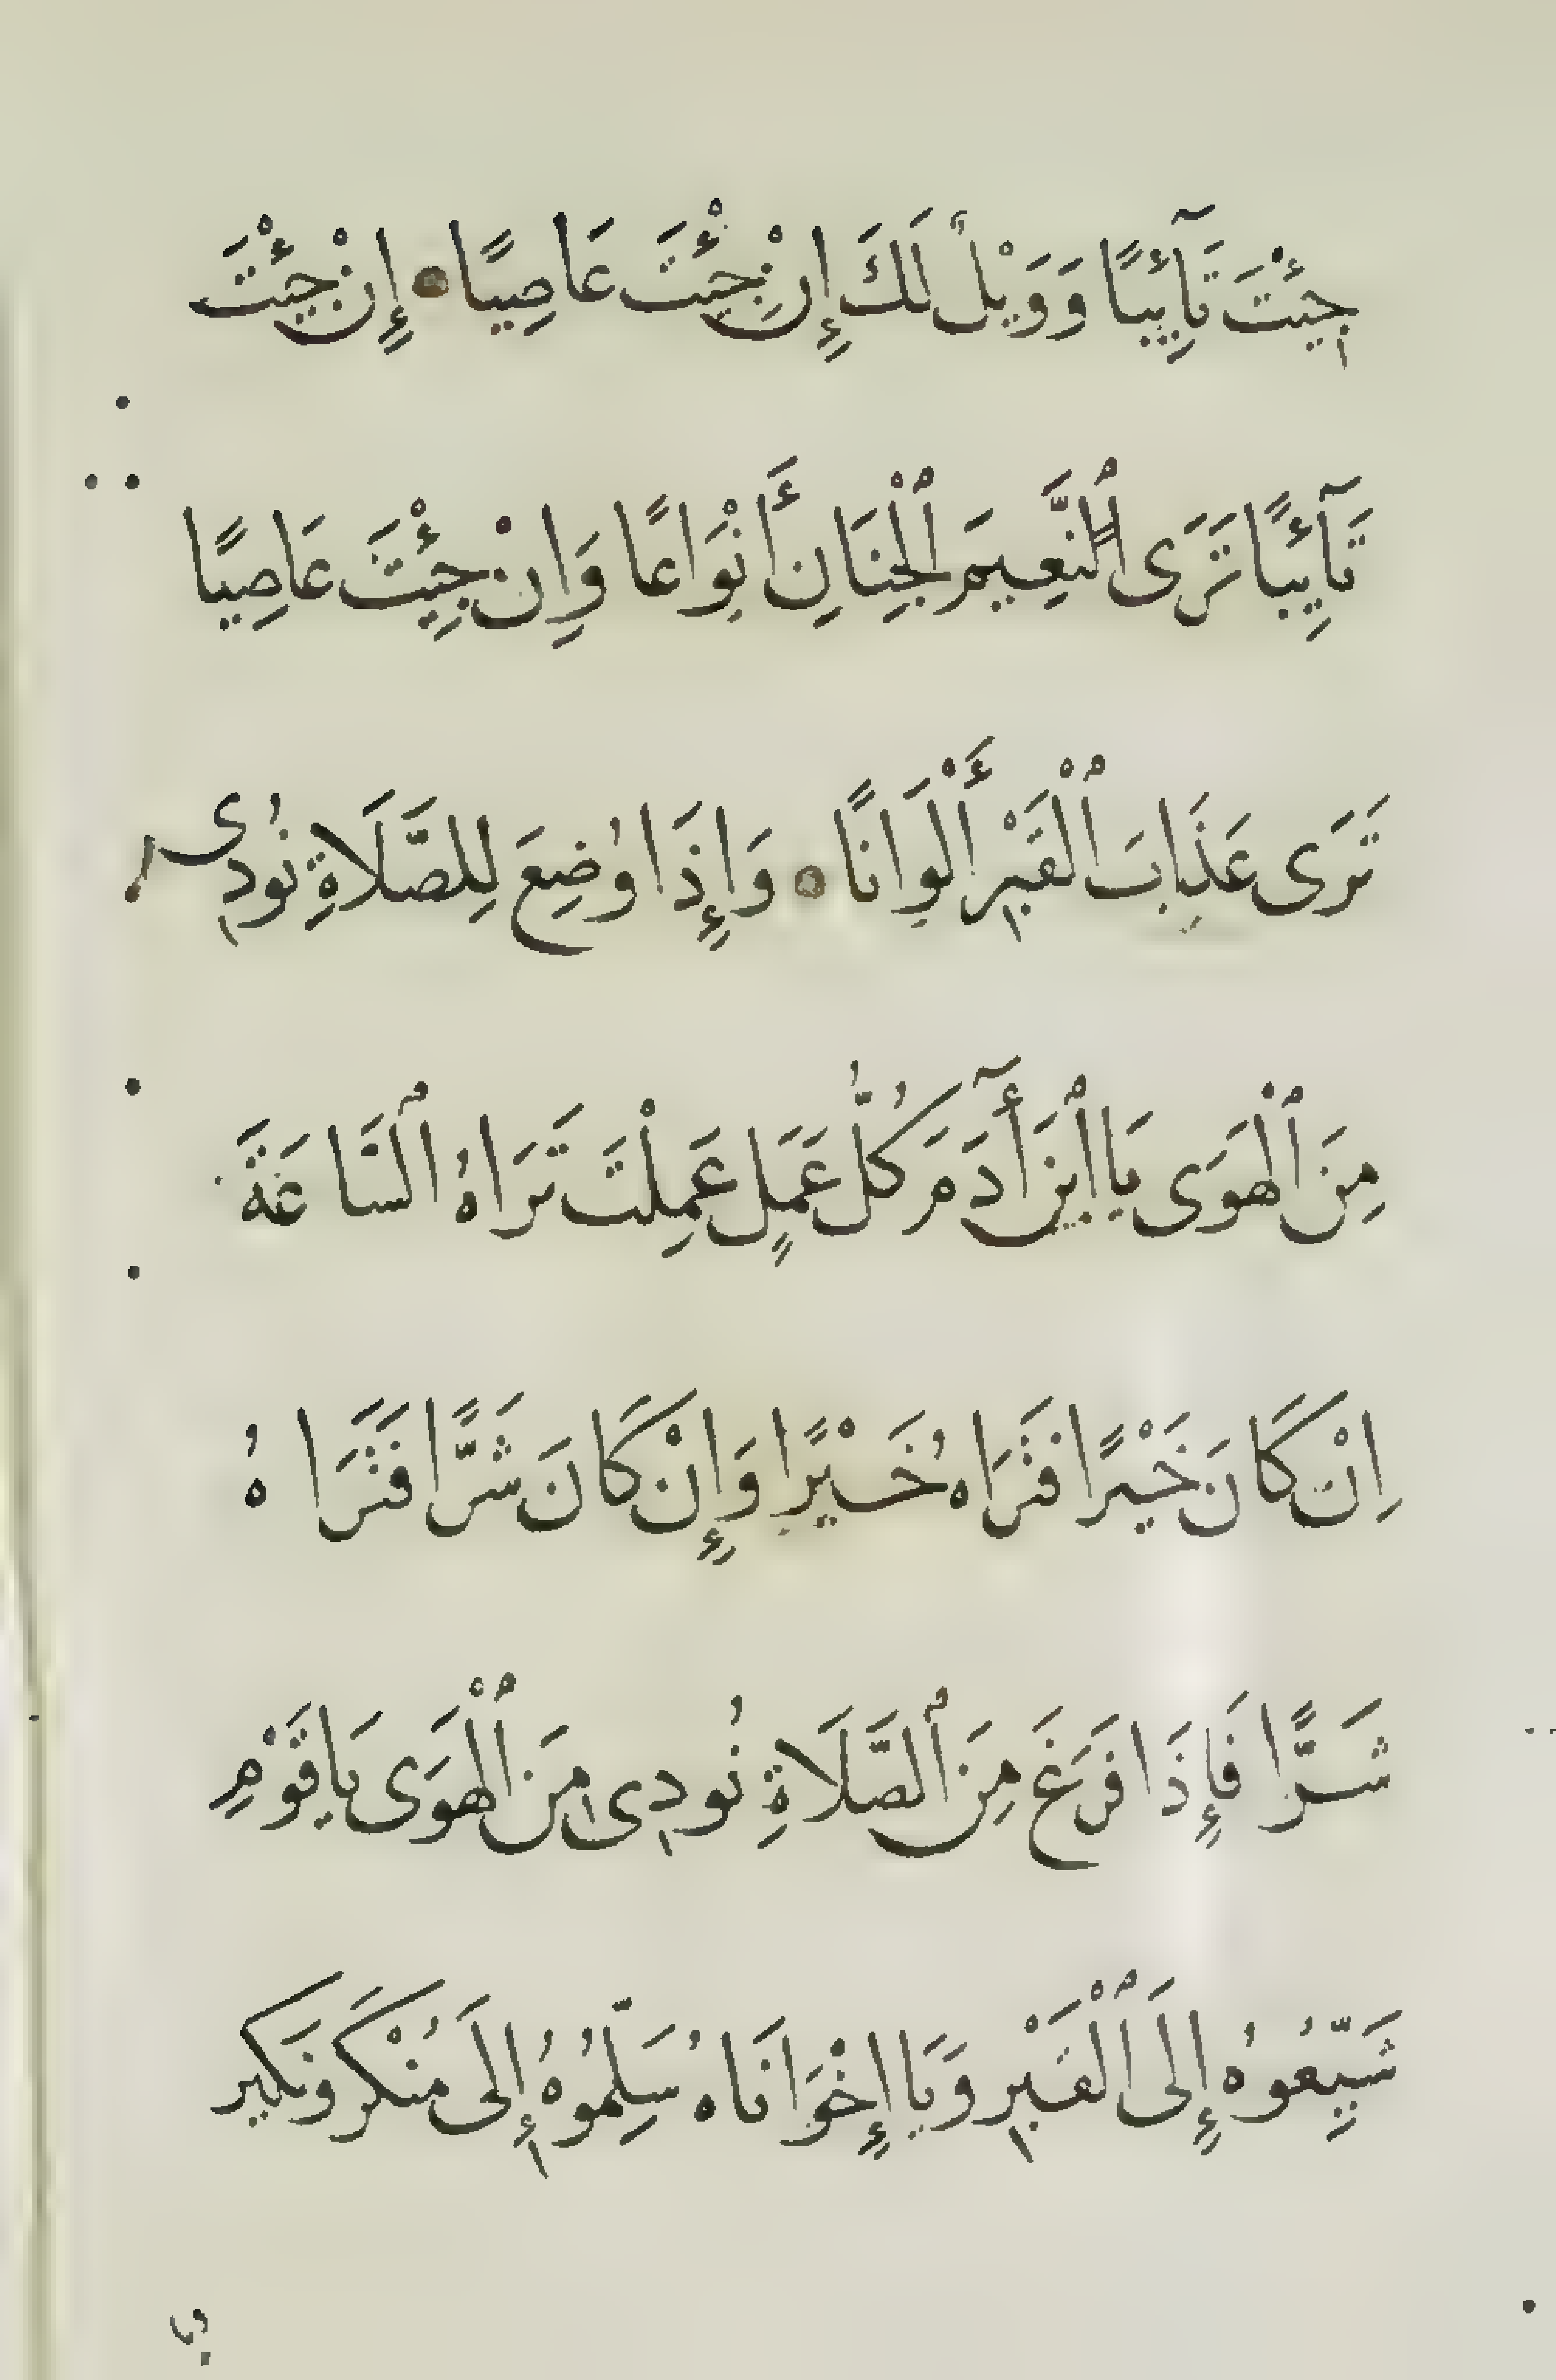 جِئْتَ تَآئِبًا وَوَيْلٌ لَكَ إِنْ جِئْتَ عَاصِيًا إِنْ جِئْتَ
تَآئِبًا تَرَى ٱلنَّعِيمَ ٱلْجِنَانِ أَنْوَاعًا وَاِنْ جِئْتَ عَاصِيًا
تَرَى عَذَابَ ٱلْقَبْرِ أَلْوَانًا وَإِذَا وُضِعَ لِلصَّلَاةِ نُودِى
مِنَ ٱلْهَوَى يَا ٱبْنَ أٓدَمَ كُلُّ عَمَلٍ عَمِلْتَ تَرَاهُ ٱلسَّاعَةَ
اِنْ كَانَ خَيْرًا فَتَرَاهُ خَيْرًا وَإِنْ كَانَ شَرًّا فَتَرَاهُ
شَرًّا فَإِذَا فَرَغَ مِنَ ٱلصَّلَاةِ نُودِى مِنَ ٱلْهَوَى يَا قَوْمِ
شَيِّعُوهُ إِلَى ٱلْقَبْرِ وَيَا إِخْوَانَاهُ سَلِّمُوهُ إِلَى مُنْكَرَ وَنَكِير